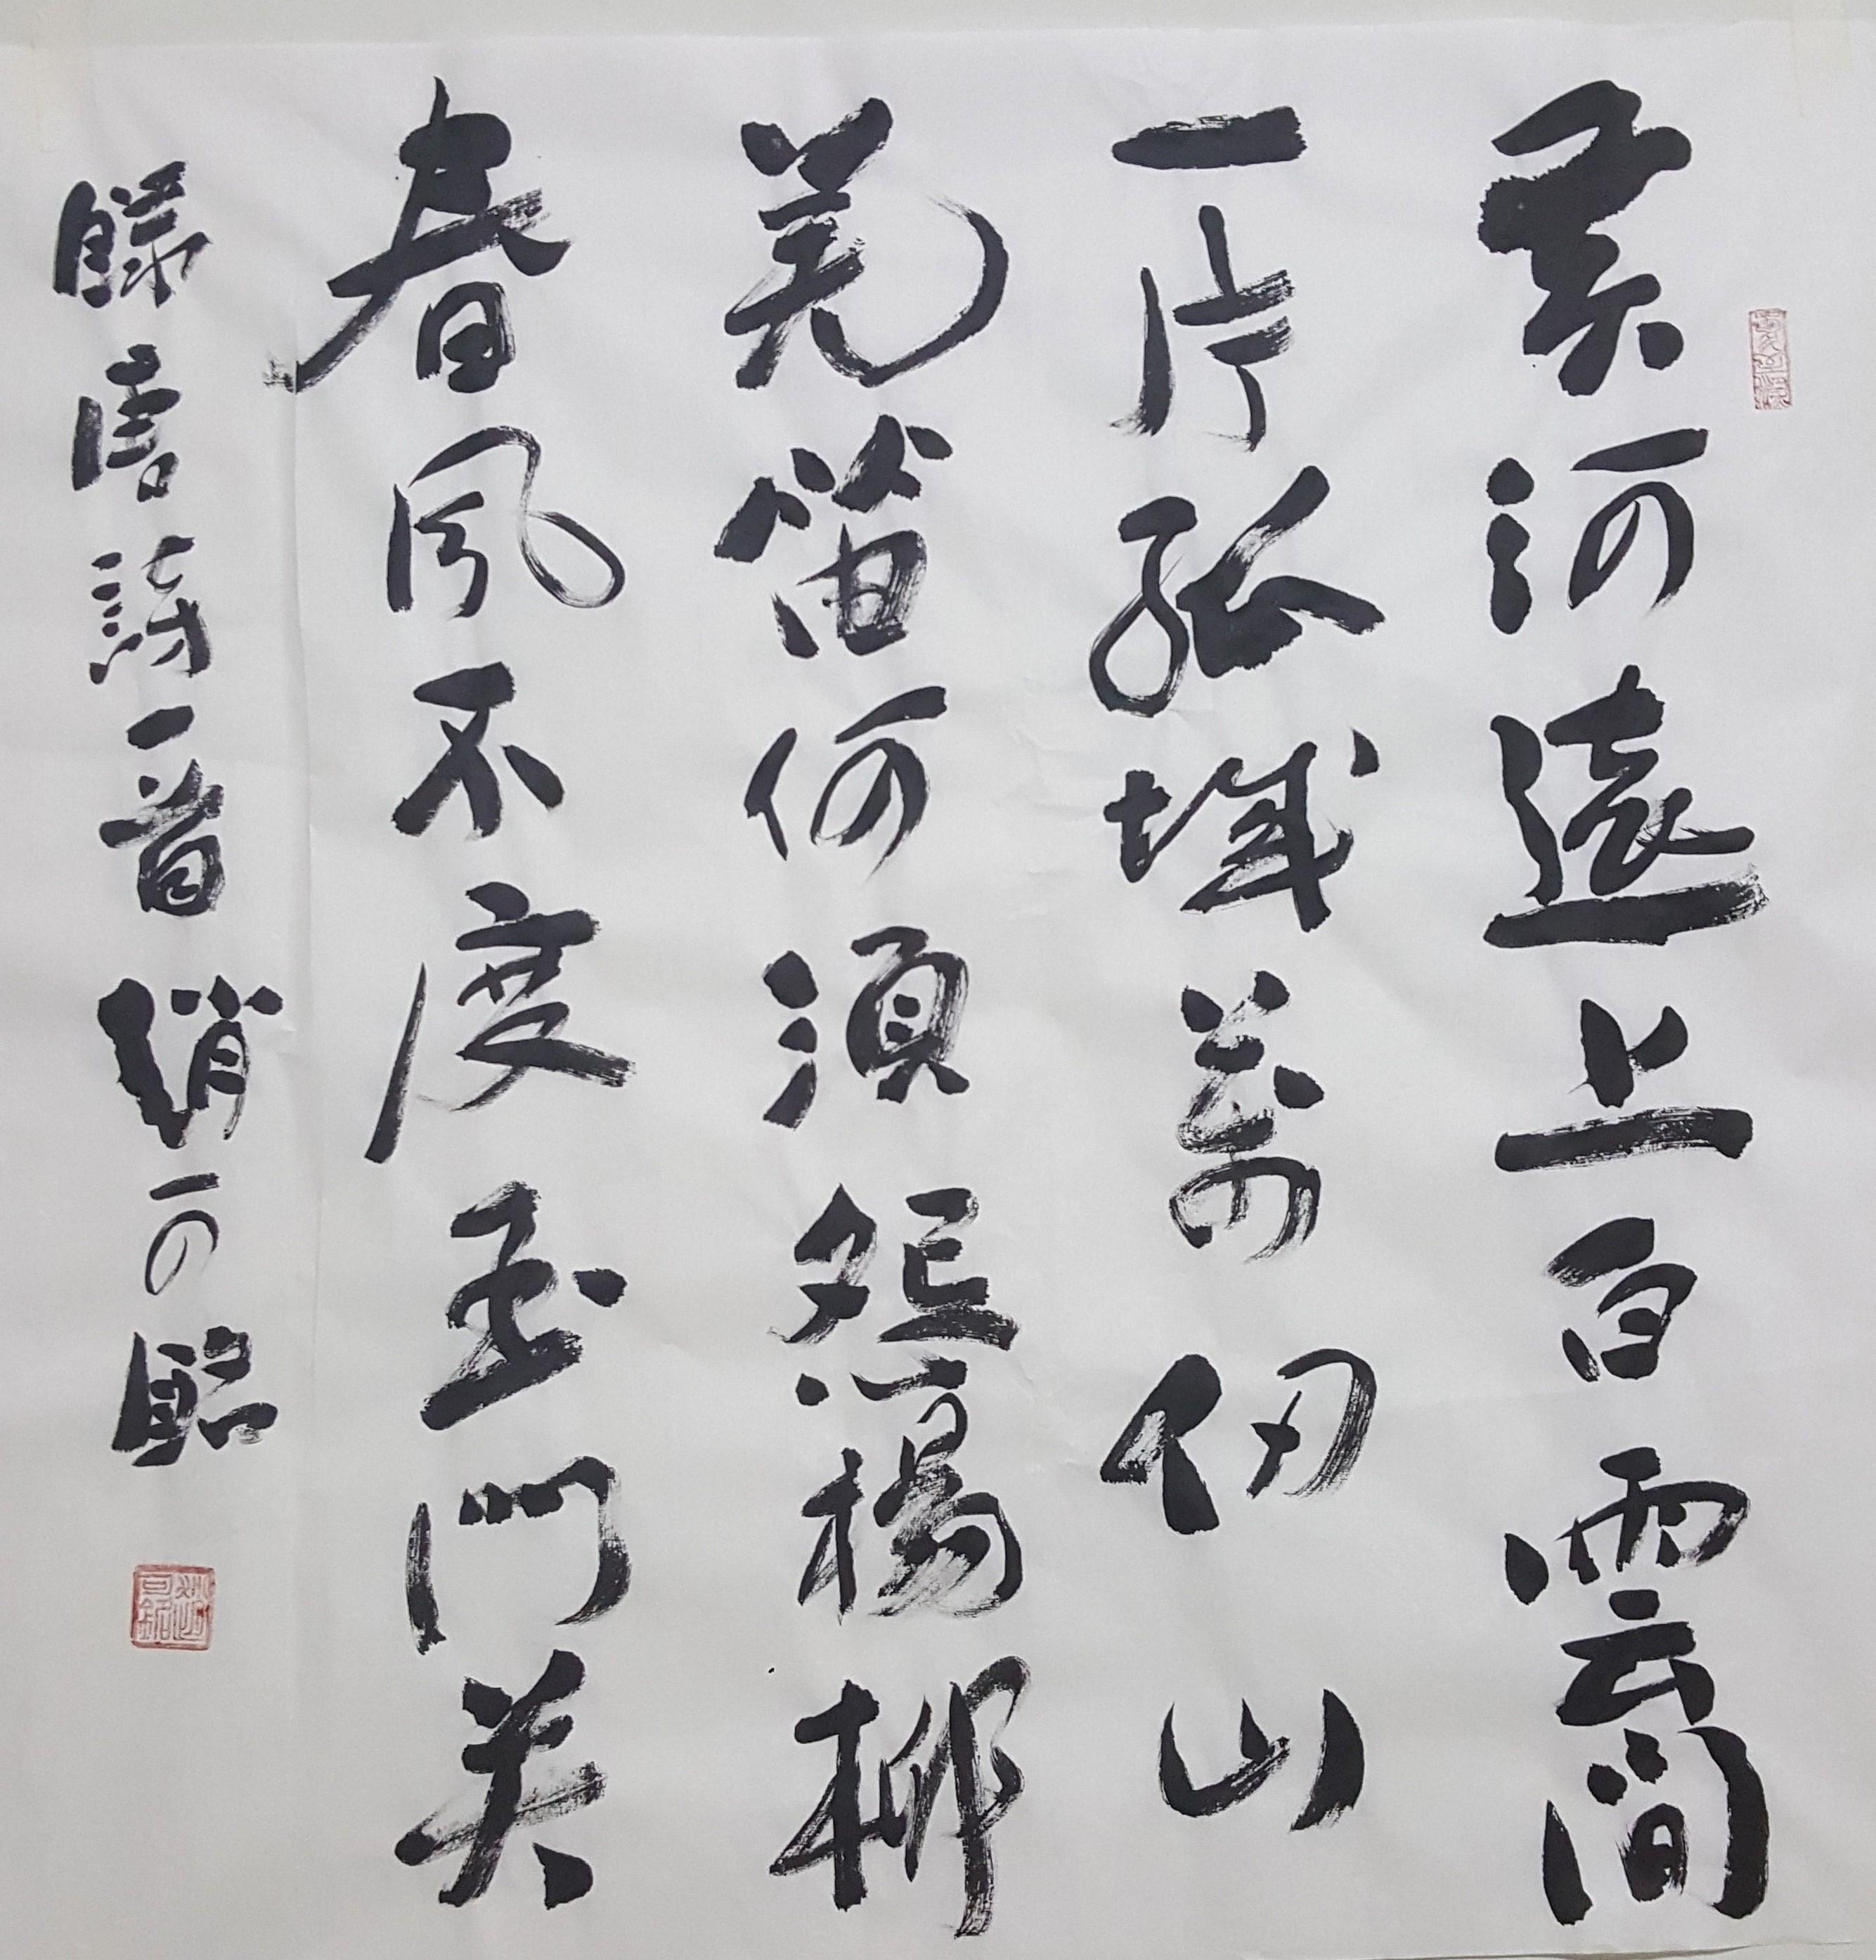 黄河遠上白雲間
一片孤城萬仞山
羌笛何須怨楊柳
春風不度玉门关
録唐詩一首 俏可銘